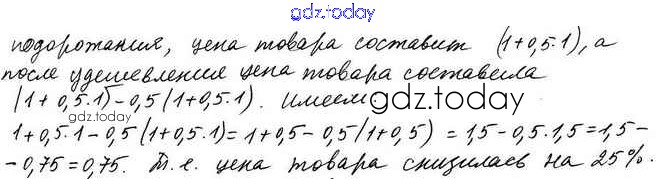 gdz.today
подорожания, цена товара составит (1+0,5·1), а
после удешевления цена товара составила
(1+0,5·1)-0,5(1+0,5·1). Имеем:
gdz.today
1+0,5·1-0,5(1+0,5·1)=1+0,5-0,5(1+0,5)=1,5-0,5·1,5=1,5-
-0,75=0,75. Т.е. цена товара снизилась на 25%.